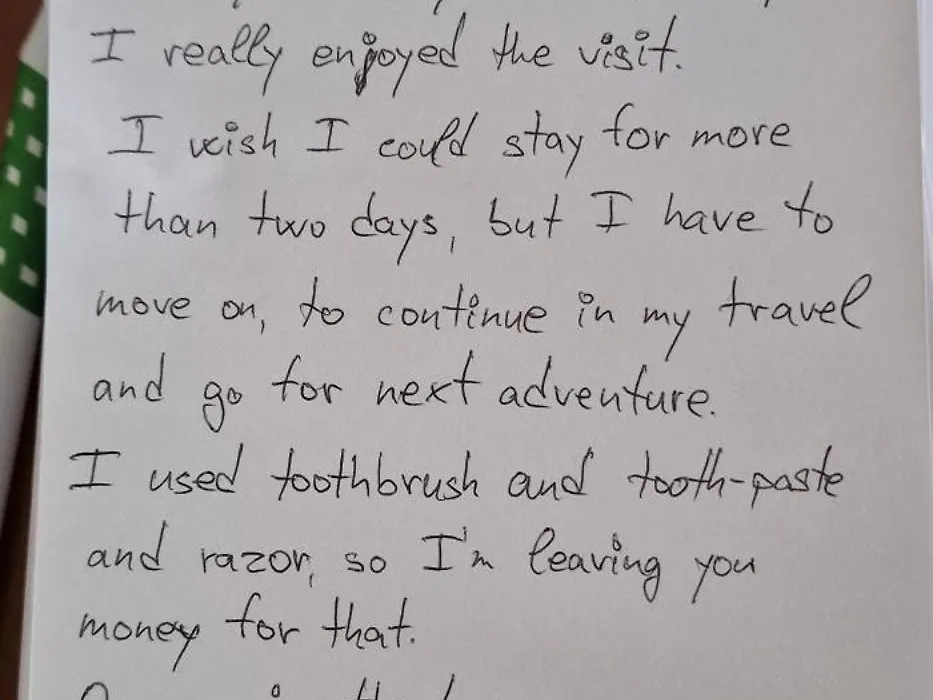 I really enjoyed the visit.
I wish I could stay for more
than two days, but I have to
move on, to continue in my travel
and go for next adventure.
I used toothbrush and tooth-paste
and razor, so I'm leaving you
money for that.